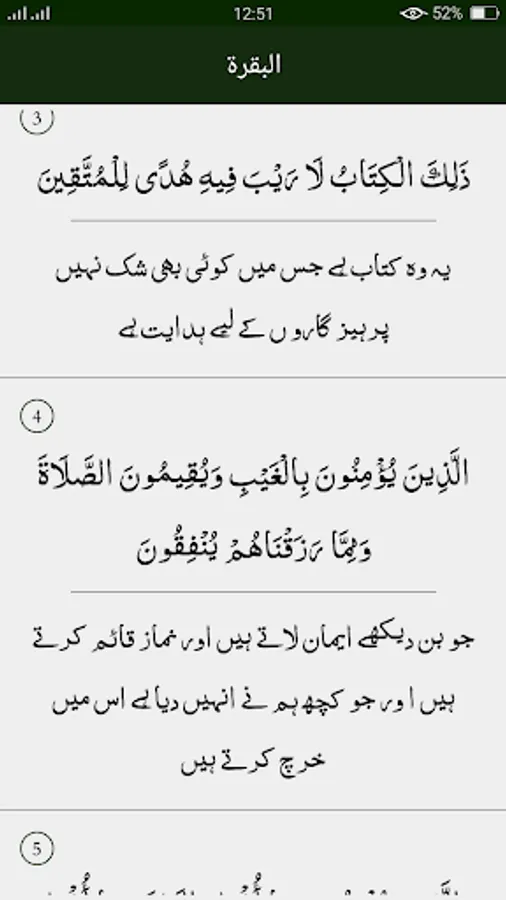 12:51
52%
البقرة
3
ذَلِكَ الْكِتَابُ لَا رَيْبَ فِيهِ هُدًى لِلْمُتَّقِينَ
یہ وہ کتاب ہے جس میں کوئی بھی شک نہیں
پرہیز گارو ں کے لیے ہدایت ہے
4
الَّذِينَ يُؤْمِنُونَ بِالْغَيْبِ وَيُقِيمُونَ الصَّلَاةَ
وَمِمَّا رَزَقْنَاهُمْ يُنْفِقُونَ
جو بن دیکھے ایمان لاتے ہیں اور نماز قائم کرتے
ہیں ا ور جو کچھ ہم نے انہیں دیا ہے اس میں
خرچ کرتے ہیں
5